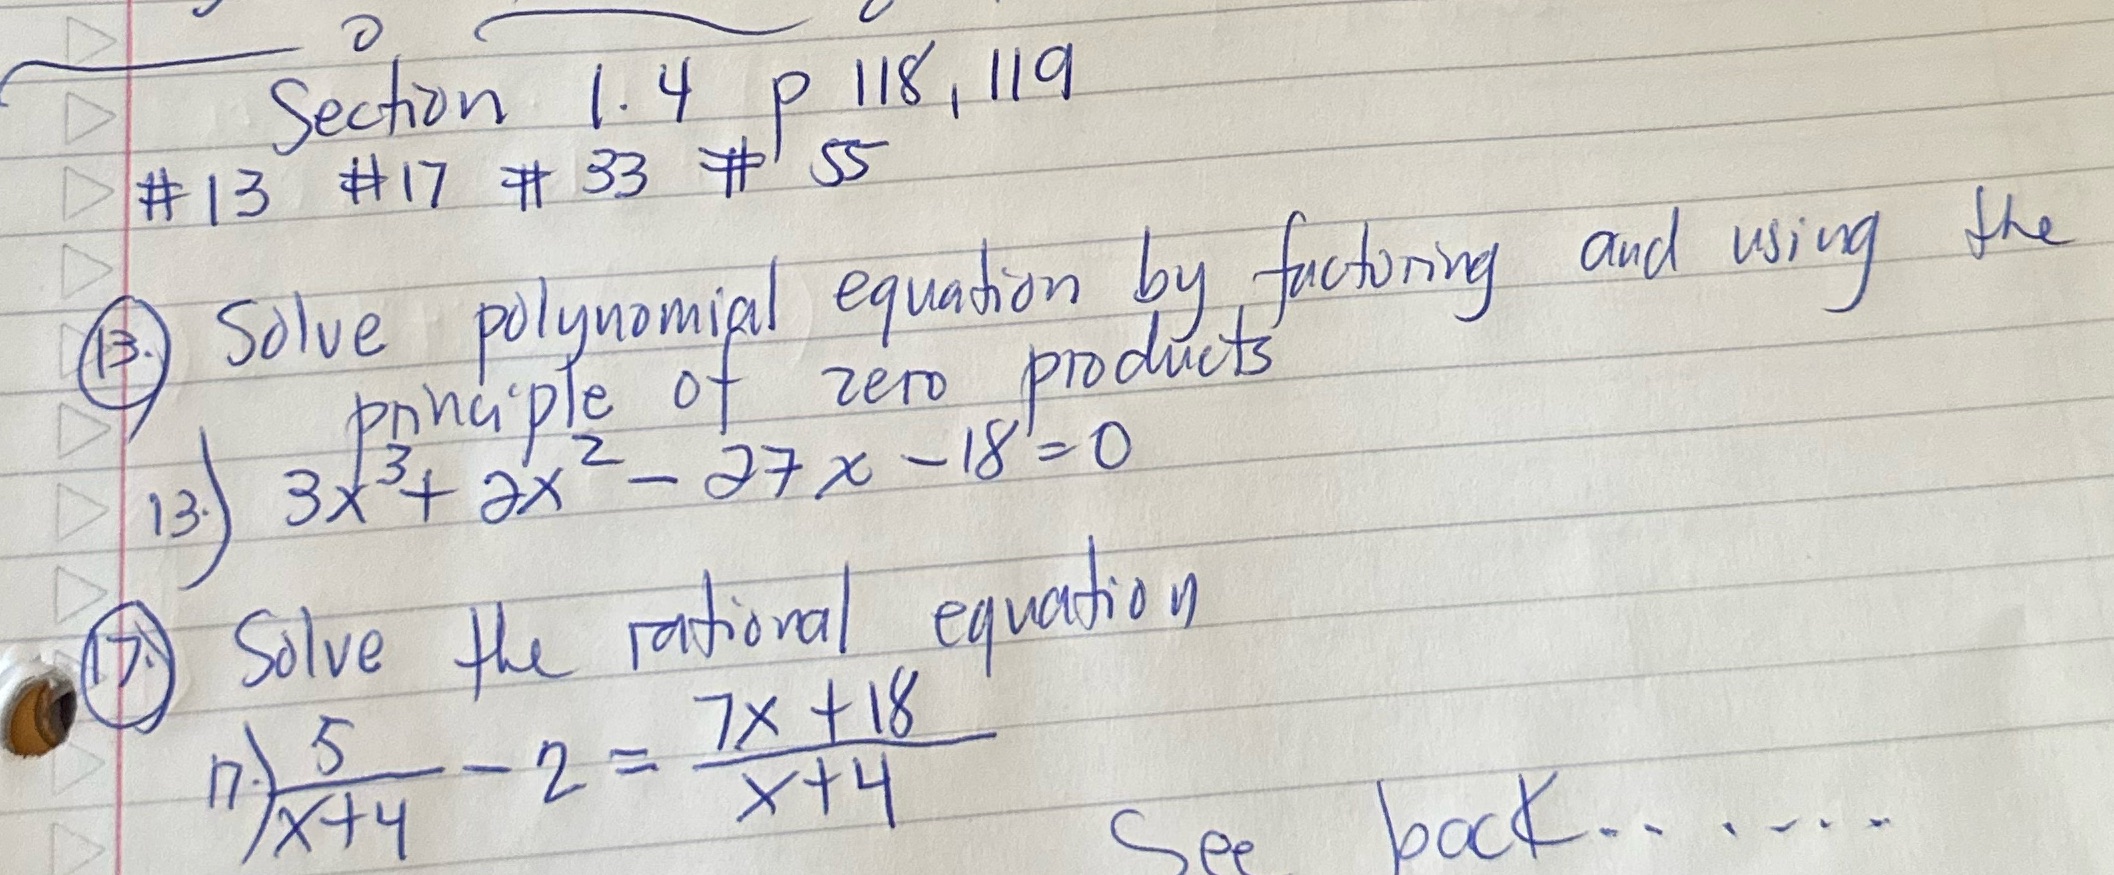 Section 1.4 p 118, 119
#13 #17 #33 #55
13. Solve polynomial equation by factoring and using the
principle of zero products
13.) 3x³ + 2x² - 27x - 18 = 0
17. Solve the rational equation
17.) 5/(x+4) - 2 = (7x+18)/(x+4)
See back.......